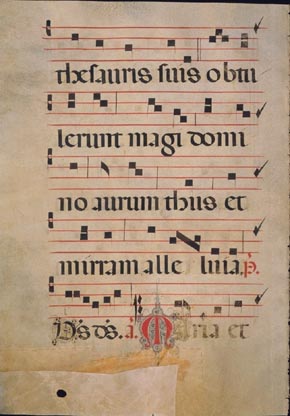 thesauris suis obtu
lerunt magi domi
no aurum thus et
mirram alle luia. p̄.
Ds̄ ds̄. a. Maria et